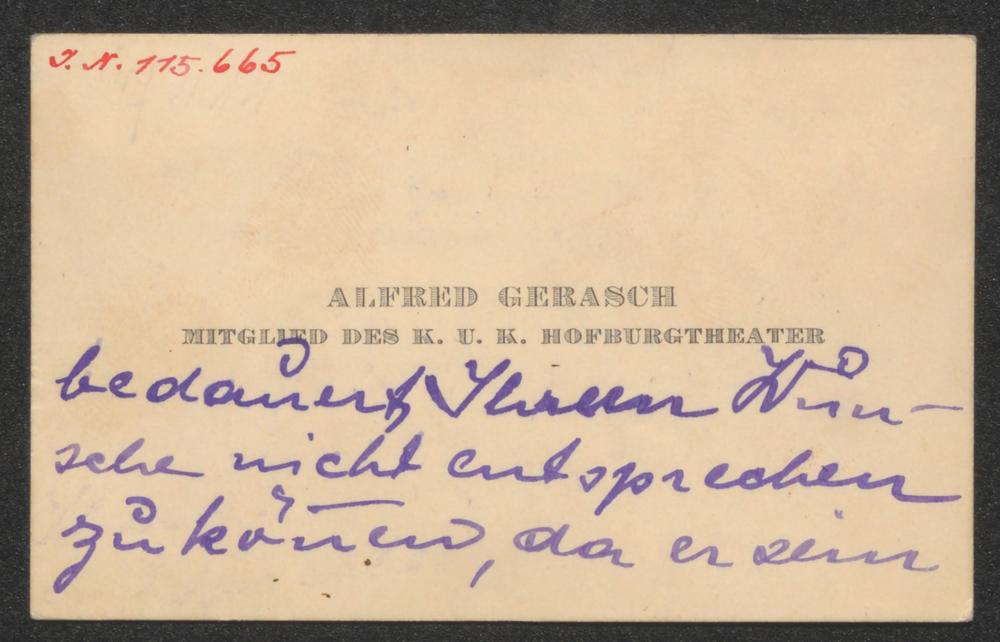 J. N. 115.665
ALFRED GERASCH
MITGLIED DES K. U. K. HOFBURGTHEATER
bedauert, Ihrem Wun-
sche nicht entsprechen
zu kön̄en, da er sein